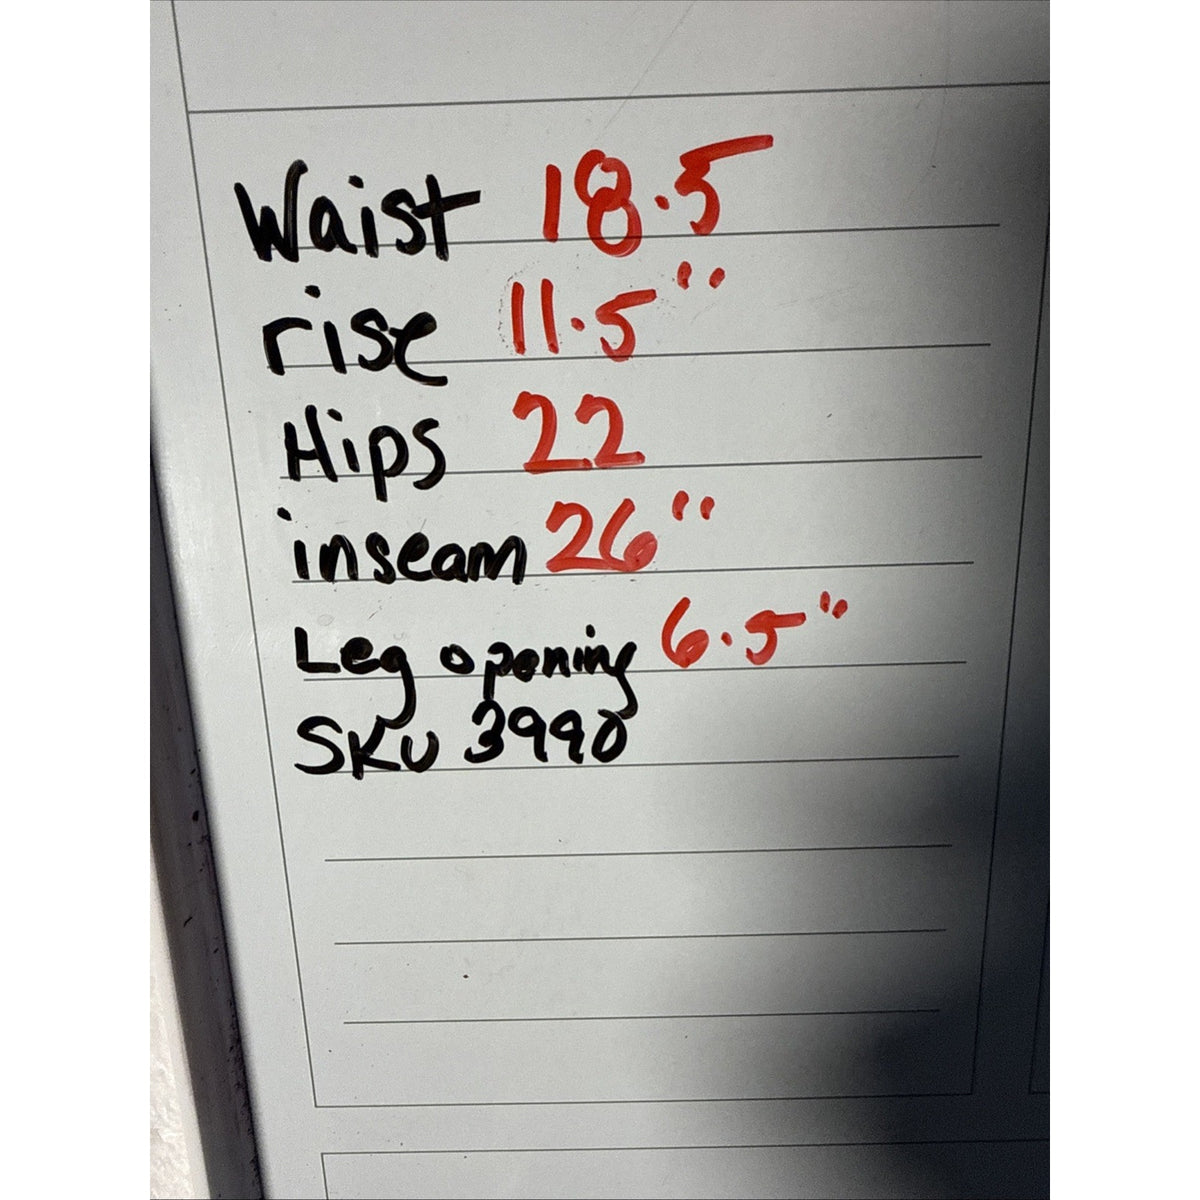 Waist 18.5
rise 11.5"
Hips 22
inseam 26"
Leg opening 6.5"
SKU 3990